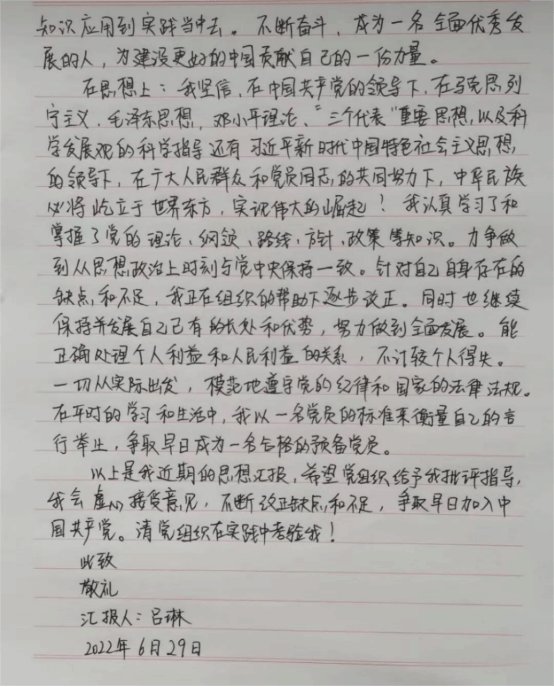 知识应用到实践当中去。不断奋斗，成为一名全面优秀发
展的人，为建设更好的中国贡献自己的一份力量。
在思想上：我坚信，在中国共产党的领导下，在马克思列
宁主义、毛泽东思想，邓小平理论、“三个代表”重要思想，以及科
学发展观的科学指导还有习近平新时代中国特色社会主义思想，
的领导下，在广大人民群众和党员同志的共同努力下，中华民族
必将屹立于世界东方，实现伟大的崛起！我认真学习了和
掌握了党的理论、纲领、路线、方针、政策等知识。力争做
到从思想政治上时刻与党中央保持一致。针对自己自身存在的
缺点和不足，我正在组织的帮助下逐步改正。同时也继续
保持并发展自己已有的长处和优势，努力做到全面发展。能
正确处理个人利益和人民利益的关系，不计较个人得失。
一切从实际出发，模范地遵守党的纪律和国家的法律法规。
在平时的学习和生活中，我以一名党员的标准来衡量自己的言
行举止，争取早日成为一名合格的预备党员。
以上是我近期的思想汇报，希望党组织给予我批评指导，
我会虚心接受意见，不断改正缺点和不足，争取早日加入中
国共产党。请党组织在实践中考验我！
此致
敬礼
汇报人：吕琳
2022年6月29日